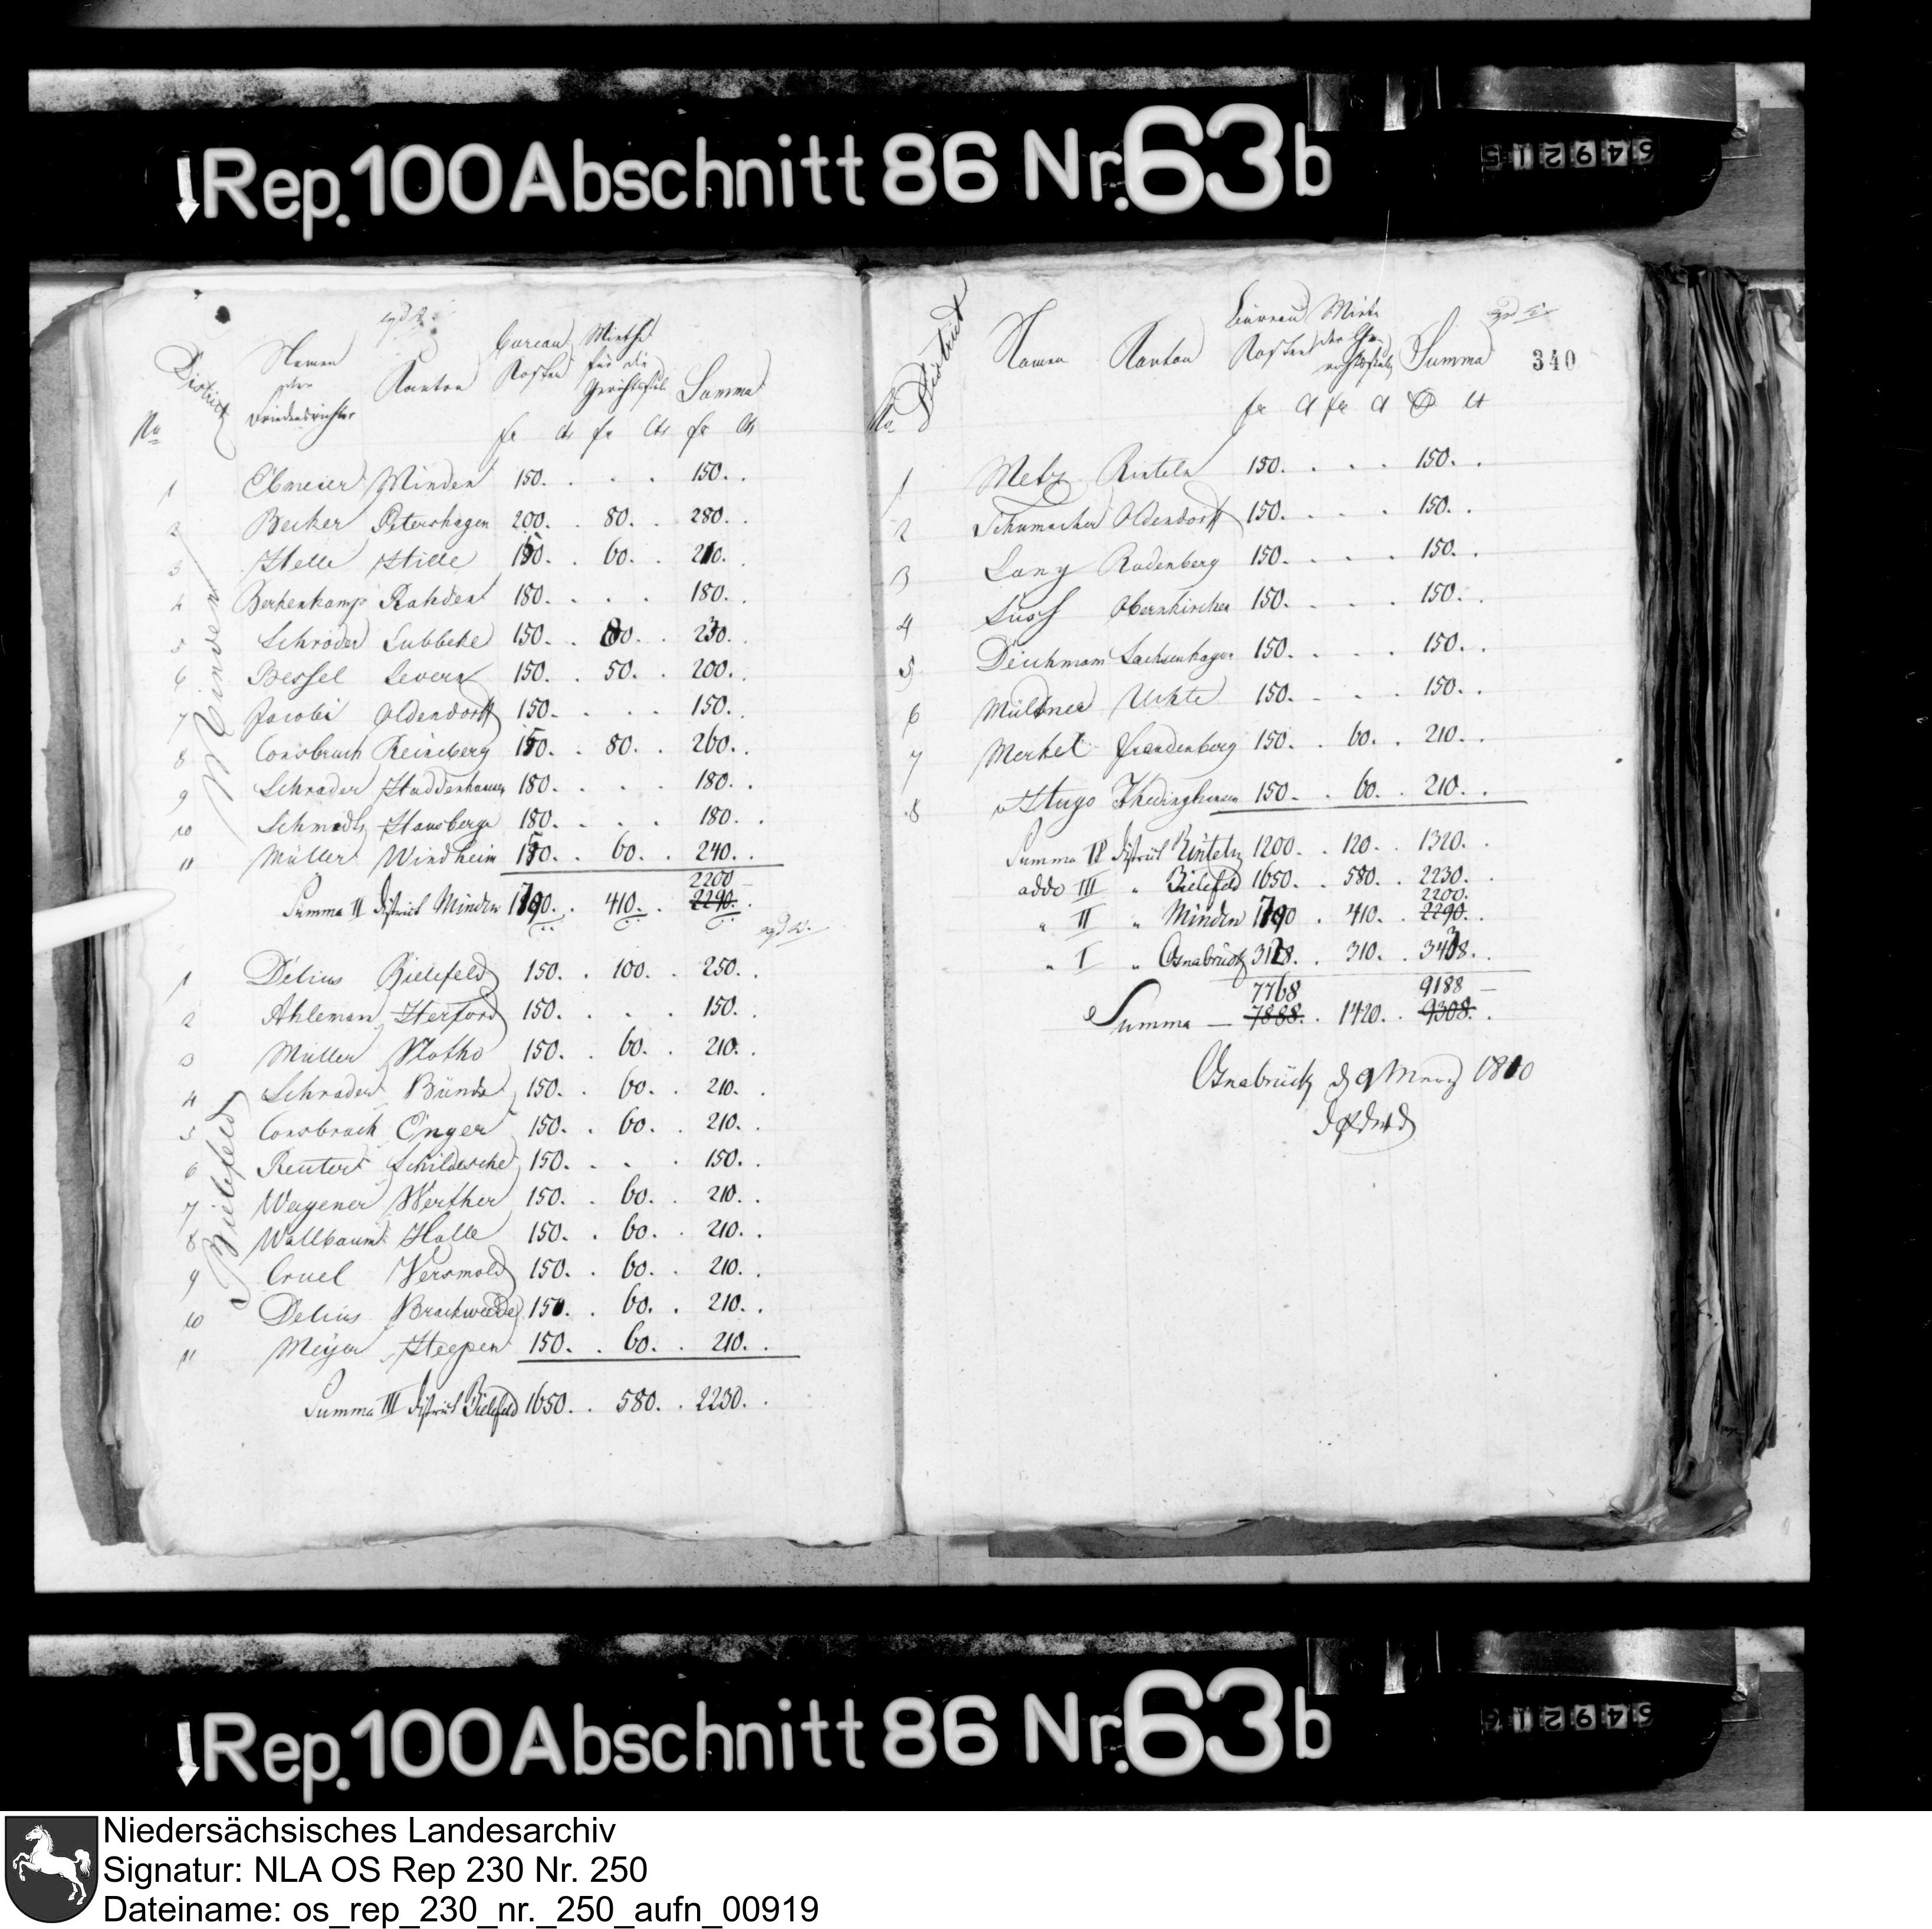 Rep. 100 Abschnitt 86 Nr. 63b
549215
District
No
Namen
der
Friedensrichter
Kanton
Bureau
Kosten
Miethe
für die
Gerichtsst.
Summa
fr cts fr cts fr cts
Minden
1 Ebmeier Minden 150. . . . 150. .
2 Becker Petershagen 200. . 80. . 280. .
3 Stelle Hille 150. . 60. . 210. .
4 Berkenkamp Rahden 180. . . . 180. .
5 Schrader Lubbeke 150. . 80. . 230. .
6 Bessel Levern 150. . 50. . 200. .
7 Jacobi Oldendorff 150. . . . 150. .
8 Consbruch Reineberg 180. . 80. . 260. .
9 Schrader Haddenhausen 180. . . . 180. .
10 Schmidts Hausberge 180. . . . 180. .
11 Müller Windheim 180. . 60. . 240. .
2200
Summa II District Minden 1790. . 410. . 2290. .
Bielefeld
1 Delius Bielefeld 150. . 100. . 250. .
2 Ahleman Herford 150. . . . 150. .
3 Müller Vlotho 150. . 60. . 210. .
4 Schrader Bünde 150. . 60. . 210. .
5 Consbruch Enger 150. . 60. . 210. .
6 Reuter Schildesche 150. . . . 150. .
7 Wagener Werther 150. . 60. . 210. .
8 Wallbaum Halle 150. . 60. . 210. .
9 Cruel Versmold 150. . 60. . 210. .
10 Delius Brackwede 150. . 60. . 210. .
11 Meyer Heepen 150. . 60. . 210. .
Summa III District Bielefeld 1650. . 580. . 2230. .
340
No District
Namen Kanton
Büreau
Kosten
Miete
der Ge-
richtsstube
Summa
fr ct fr ct ct
1 Metz Rinteln 150. . . . 150. .
2 Schumacher Oldendorff 150. . . . 150. .
3 Lang Rodenberg 150. . . . 150. .
4 Obernkirchen 150. . . . 150. .
5 Deichmann Sachsenhagen 150. . . . 150. .
6 Müldner Uchte 150. . . . 150. .
7 Merkel Freudenberg 150. . 60. . 210. .
8 Hugo Thedinghausen 150. . 60. . 210. .
Summa IV District Rinteln 1200. . 120. . 1320. .
addo III " Bielefeld 1650. . 580. . 2230. .
2200.
" II " Minden 1790 . 410. . 2290. .
" I " Osnabrück 3128. . 310. . 3438. .
7768 9188 —
Summa — 7888. . 1420. . 9308. .
Osnabrück d 9 März 1810
Rep. 100 Abschnitt 86 Nr. 63b
Niedersächsisches Landesarchiv
Signatur: NLA OS Rep 230 Nr. 250
Dateiname: os_rep_230_nr._250_aufn_00919